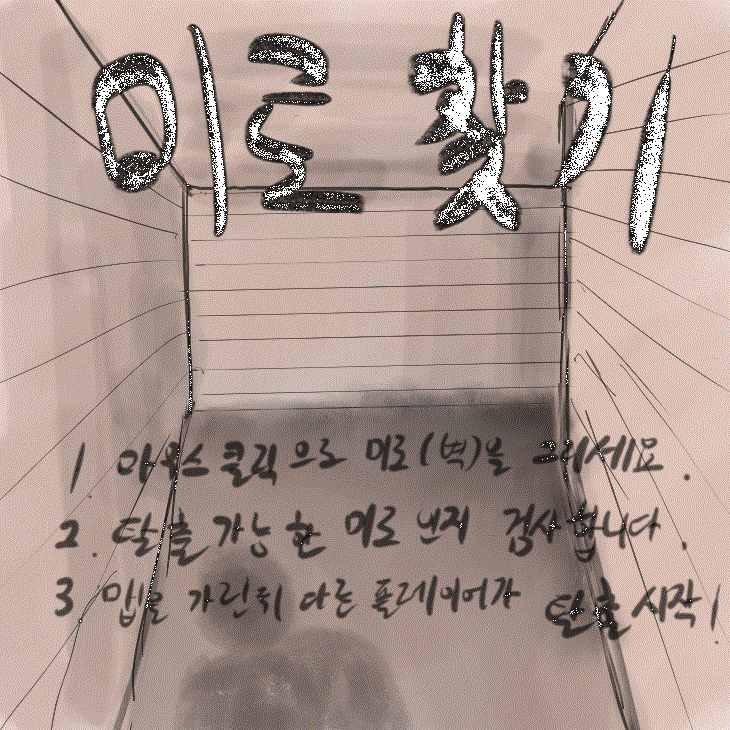 미로 찾기
1. 마우스 클릭으로 미로(벽)을 그리세요.
2. 탈출 가능한 미로인지 검사합니다.
3 맵을 가린뒤 다른 플레이어가 탈출시작!